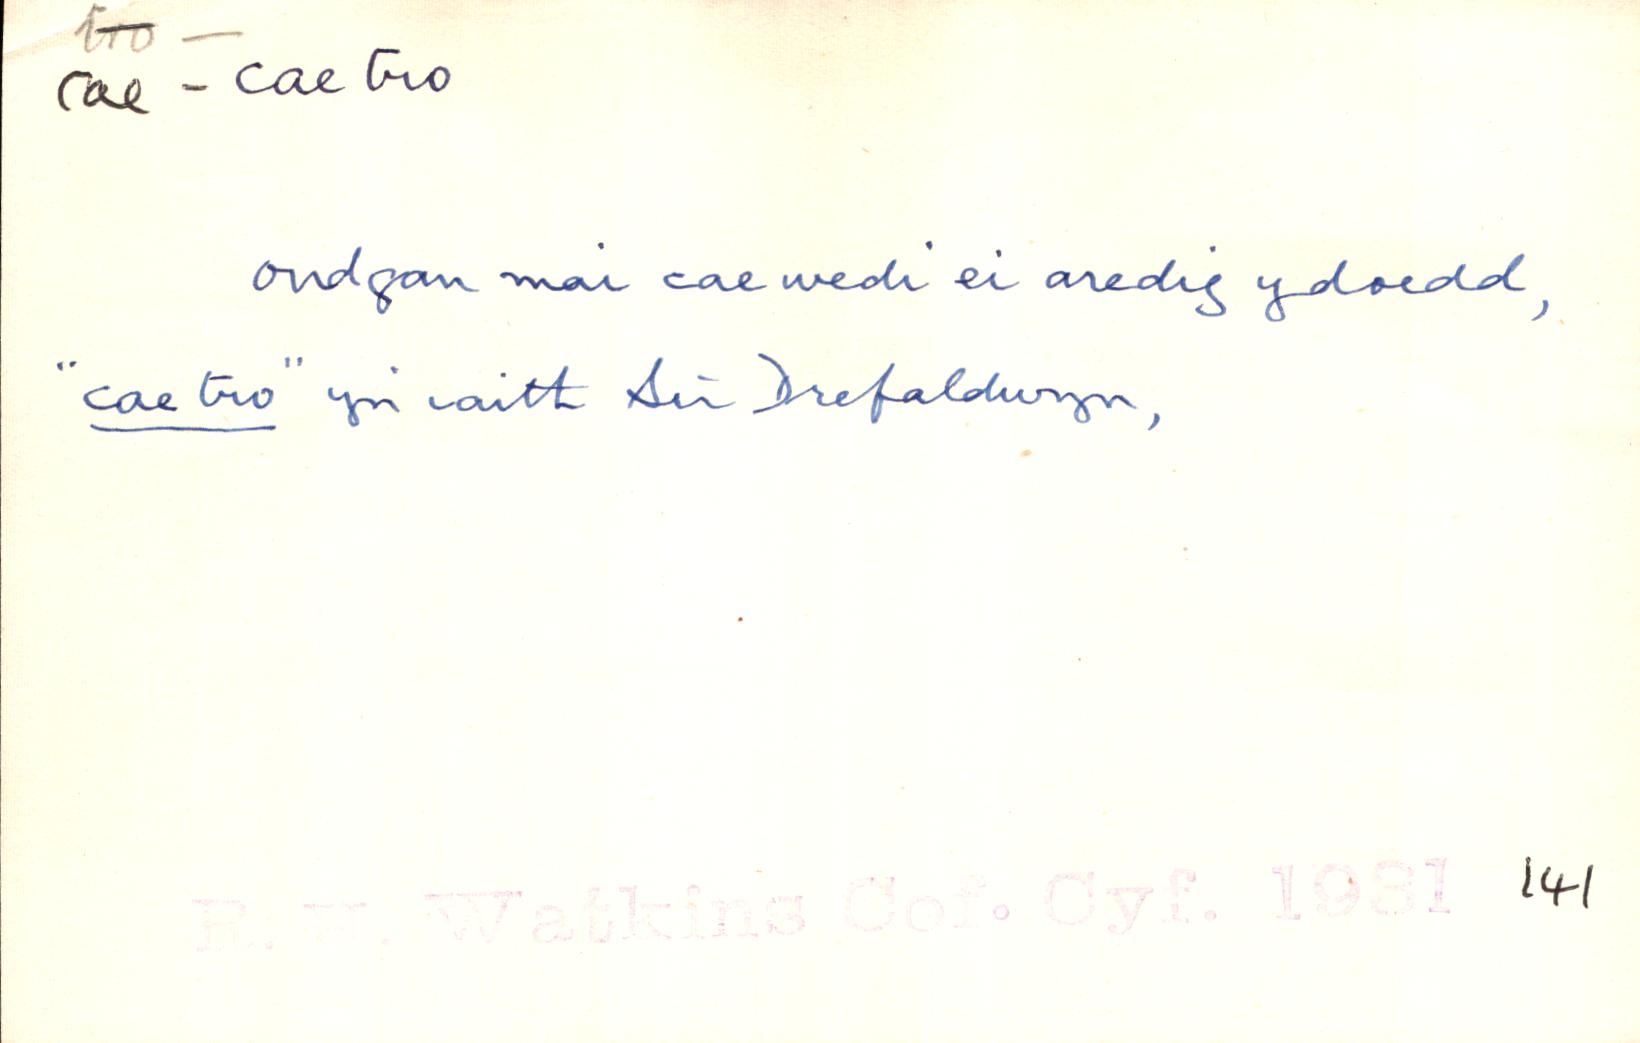 tro -
cae - cae tro
ond gan mai cae wedi ei aredig ydoedd,
"cae tro" yn iaith Sir Drefaldwyn,
Watkins Cof. Cyf. 1981 141